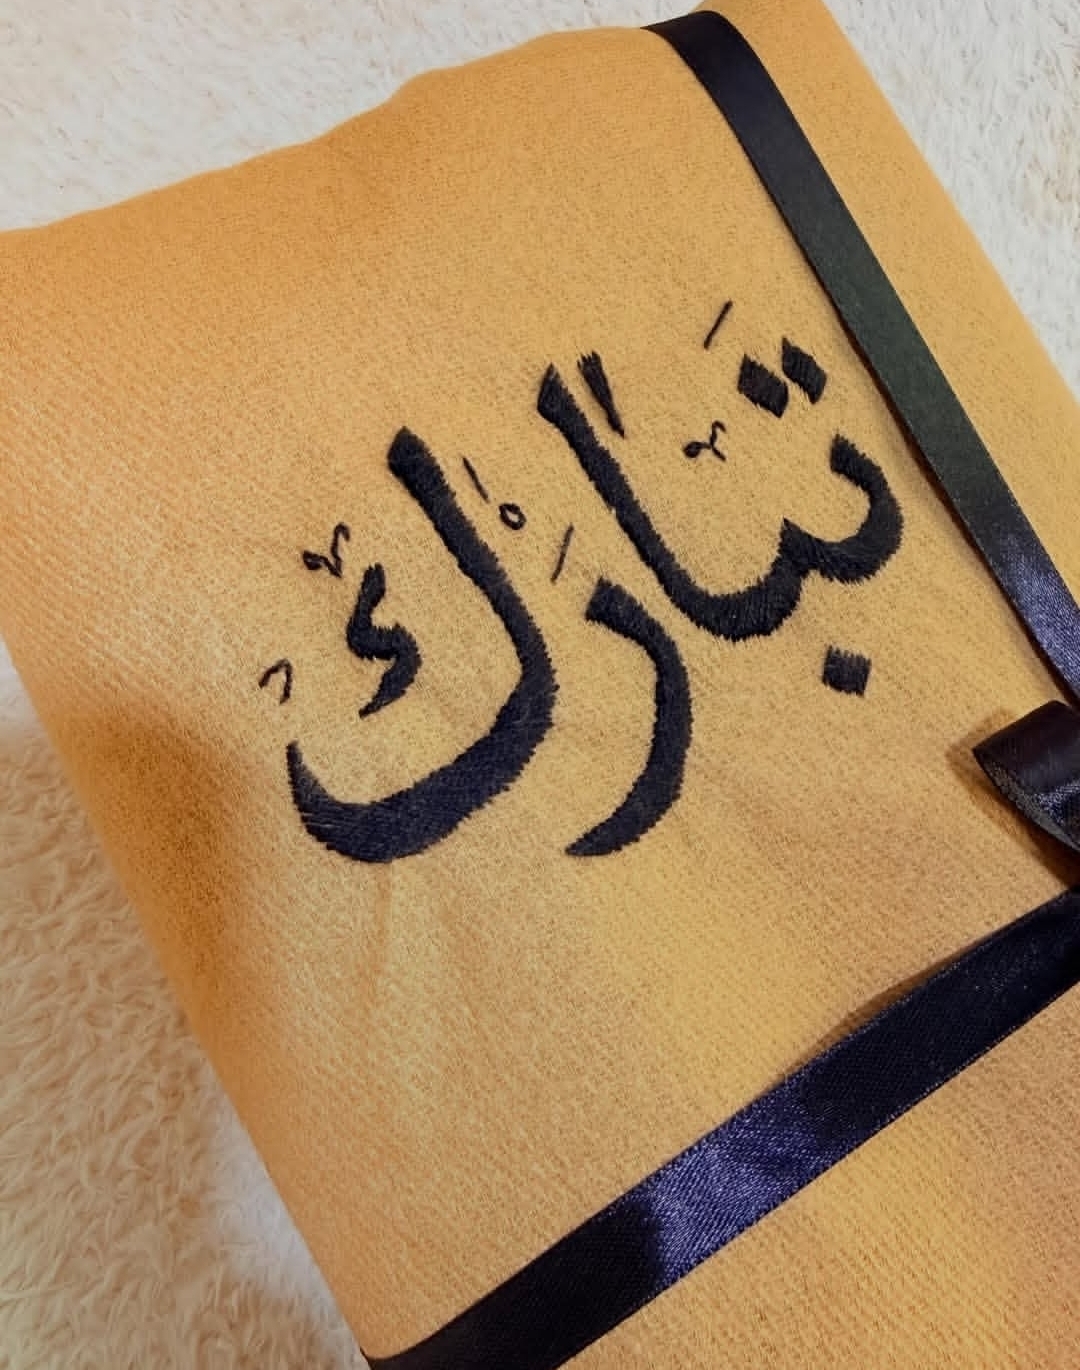 تبارَك